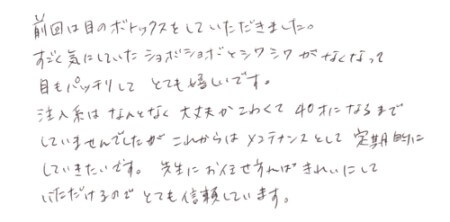 前回は目のボトックスをしていただきました。
すごく気にしていたショボショボとシワシワがなくなって
目もパッチリしてとても嬉しいです。
注入系はなんとなく大丈夫かこわくて40才になるまで
していませんでしたがこれからはメンテナンスとして定期的に
していきたいです。先生にお任せすればきれいにして
いただけるのでとても信頼しています。